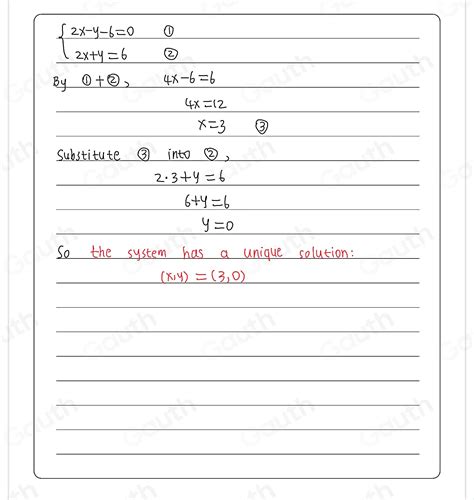 { 2x-y-6=0 ①
2x+y=6 ②
By ①+②, 4x-6=6
4x=12
x=3 ③
Substitute ③ into ②,
2·3+y=6
6+y=6
y=0
So the system has a unique solution:
(x,y)=(3,0)
Gauth